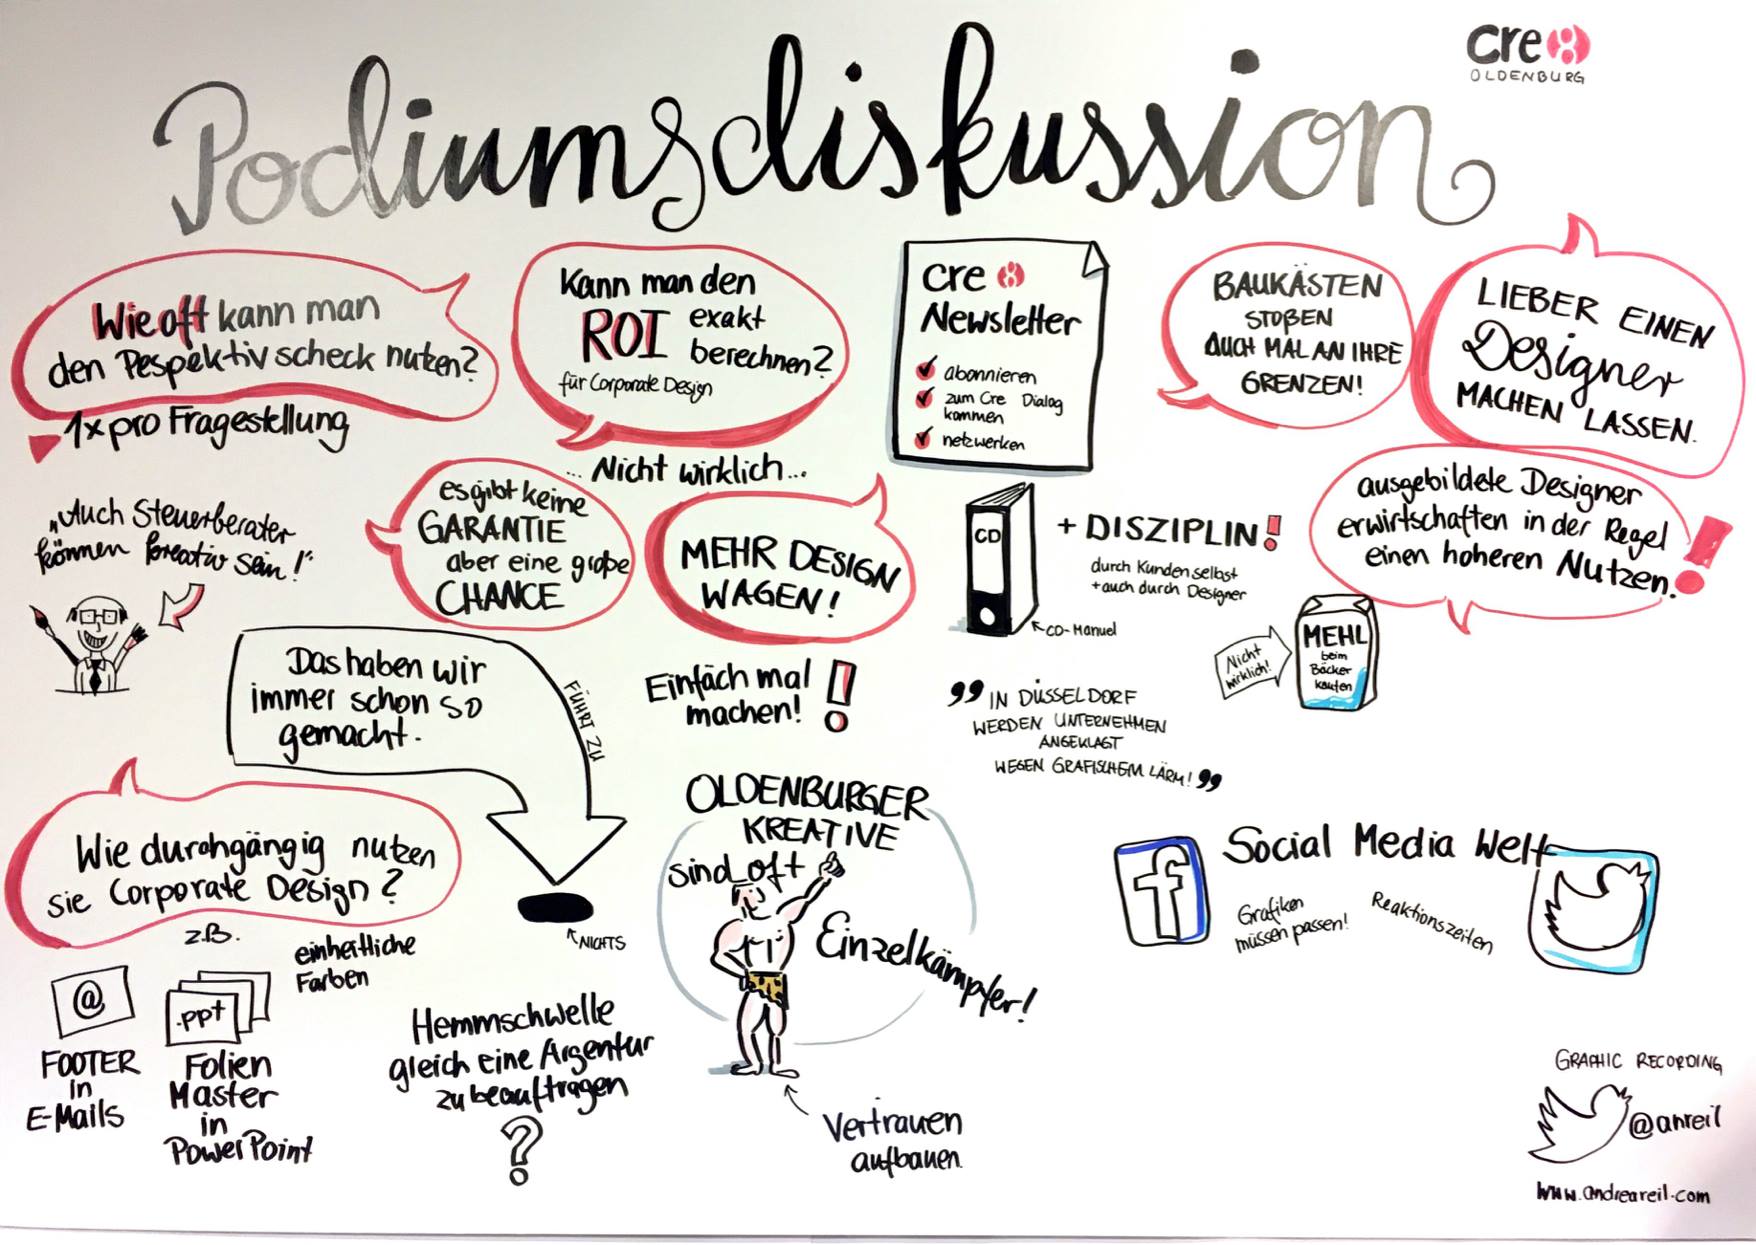 Podiumsdiskussion
cre8
OLDENBURG
Wie oft kann man
den Pespektivscheck nutzen?
1x pro Fragestellung
Kann man den
ROI exakt
berechnen?
für Corporate Design
... Nicht wirklich...
cre 8
Newsletter
abonnieren
zum Cre Dialog
kommen
netzwerken
BAUKÄSTEN
STOßEN
AUCH MAL AN IHRE
GRENZEN!
LIEBER EINEN
Designer
MACHEN LASSEN.
„Auch Steuerberater
können kreativ sein!"
es gibt keine
GARANTIE
aber eine große
CHANCE
MEHR DESIGN
WAGEN!
Einfach mal
machen!
CD
+ DISZIPLIN!
durch Kunden selbst
+ auch durch Designer
CD-Manuel
ausgebildete Designer
erwirtschaften in der Regel
einen hoheren Nutzen.!
Nicht
wirklich!
MEHL
beim
Bäcker
kaufen
Das haben wir
immer schon so
gemacht.
FÜHRT ZU
NICHTS
"IN DÜSSELDORF
WERDEN UNTERNEHMEN
ANGEKLAGT
WEGEN GRAFISCHEM LÄRM!"
Wie durchgängig nutzen
sie Corporate Design?
z.B.
einheitliche
Farben
@
FOOTER
in
E-Mails
.ppt
Folien
Master
in
PowerPoint
Hemmschwelle
gleich eine Argentur
zu beauftragen
?
OLDENBURGER
KREATIVE
sind oft
Einzelkämpfer!
Vertrauen
aufbauen.
f
Social Media Welt
Grafiken
müssen passen!
Reaktionszeiten
GRAPHIC RECORDING
@anreil
www.andreareil.com